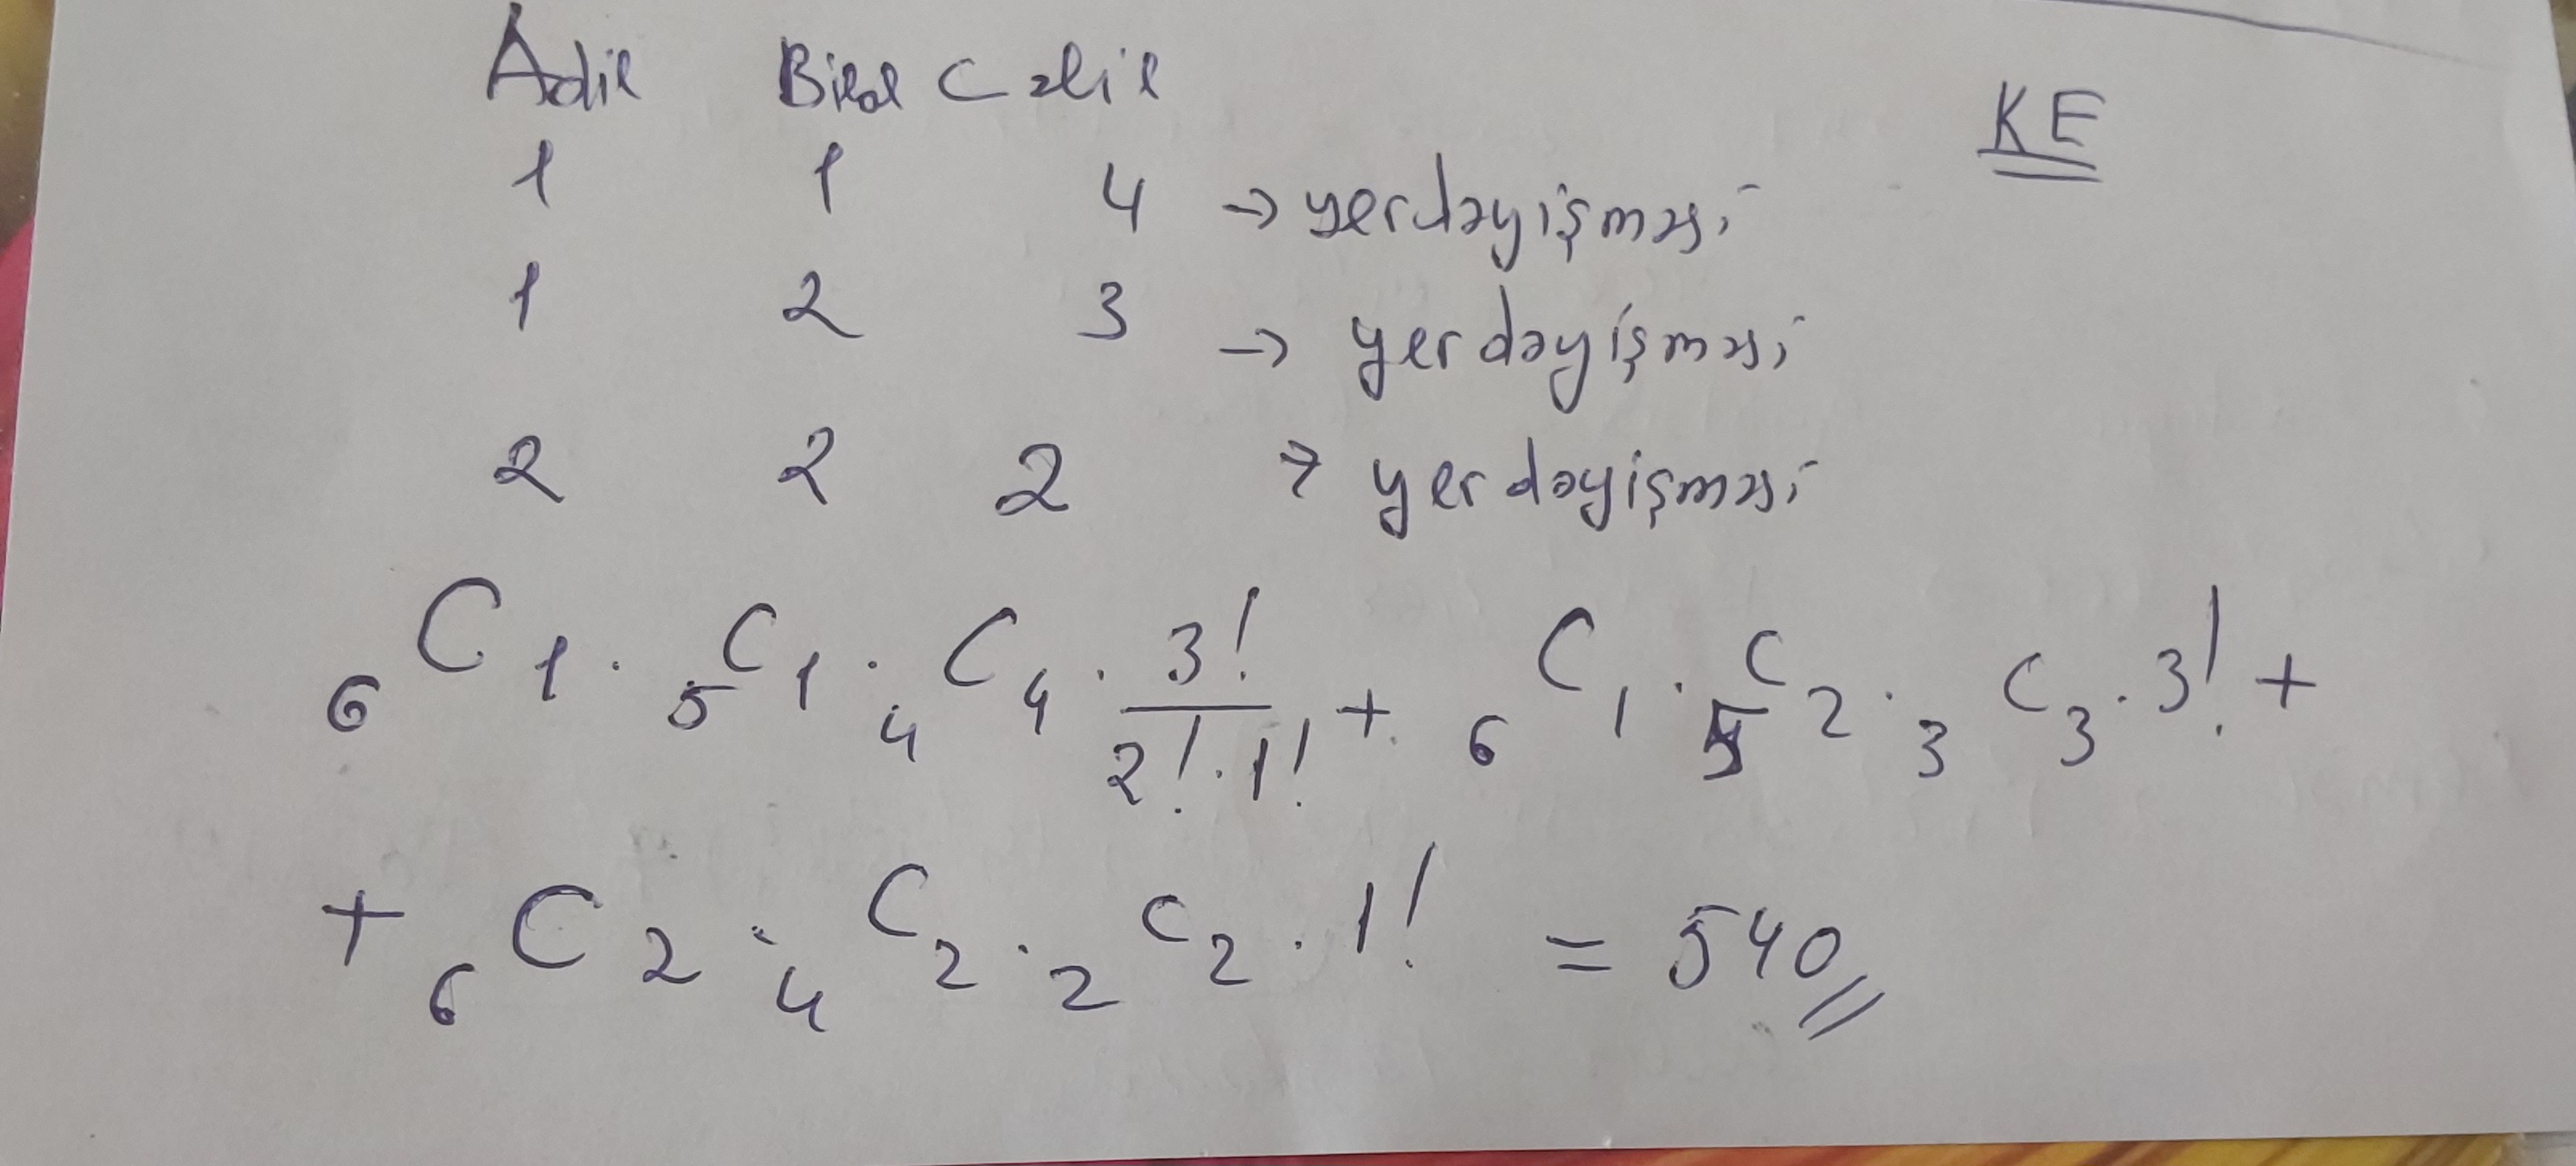 Adil Bilal Cəlil
KE
1 1 4 → yerdəyişməsi
1 2 3 → yerdəyişməsi
2 2 2 → yerdəyişməsi
₆C₁ · ₅C₁ · ₄C₄ · 3!/(2!·1!) + ₆C₁ · ₅C₂ · ₃C₃ · 3! +
+ ₆C₂ · ₄C₂ · ₂C₂ · 1! = 540